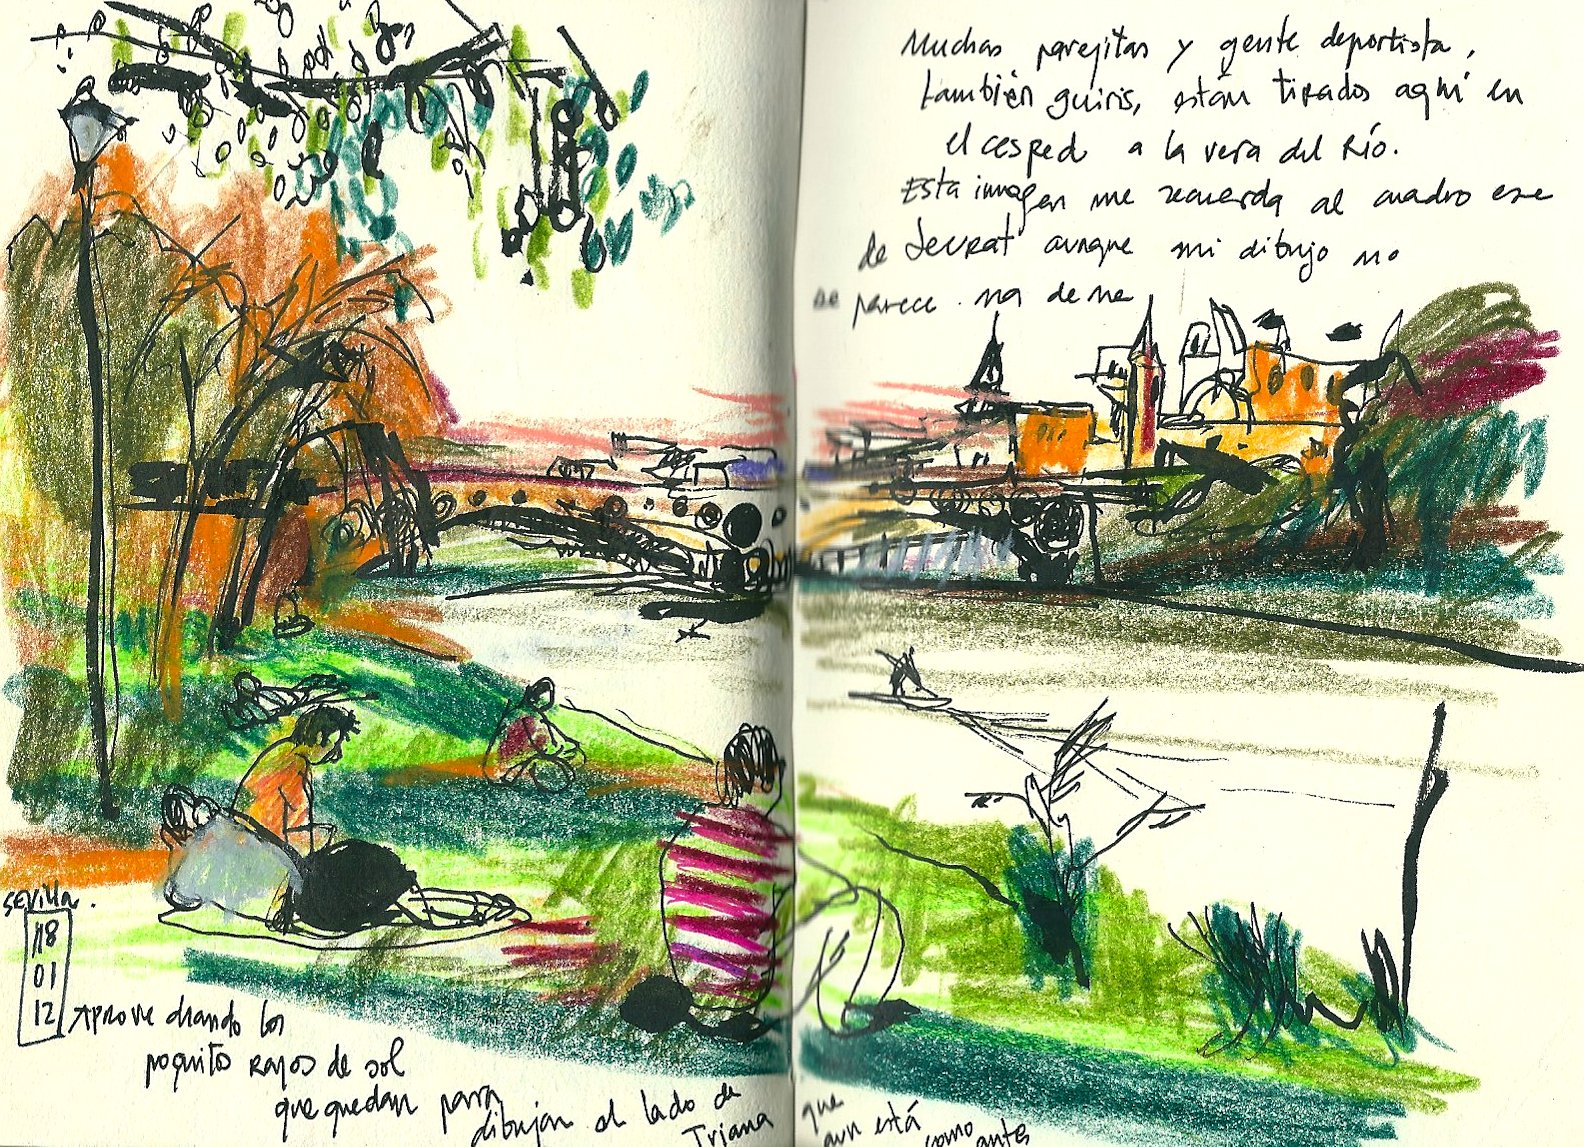 Muchas parejitas y gente deportista,
también guiris, están tirados aquí en
el cesped a la vera del Río.
Esta imagen me recuerda al cuadro ese
de Seurat aunque mi dibujo no
se parece na de na
Sevilla.
18
01
12
Aprovechando los
poquitos rayos de sol
que quedan para
dibujar el lado de
Triana
que
aun está
como antes